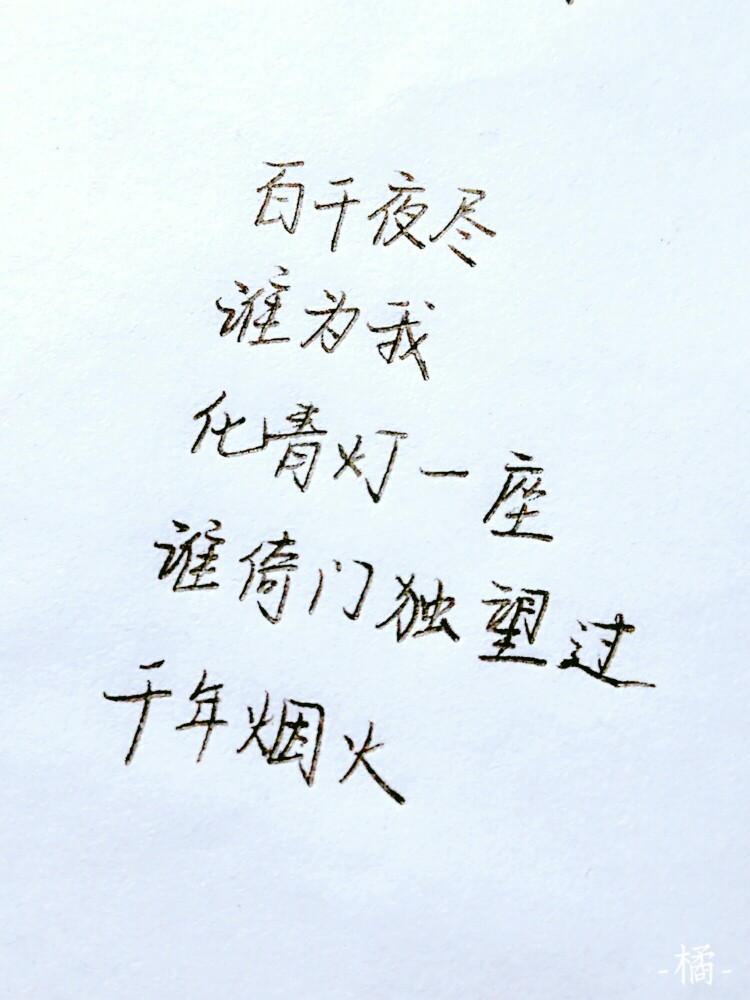 百千夜尽
谁为我
化青灯一座
谁倚门独望过
千年烟火
-橘-